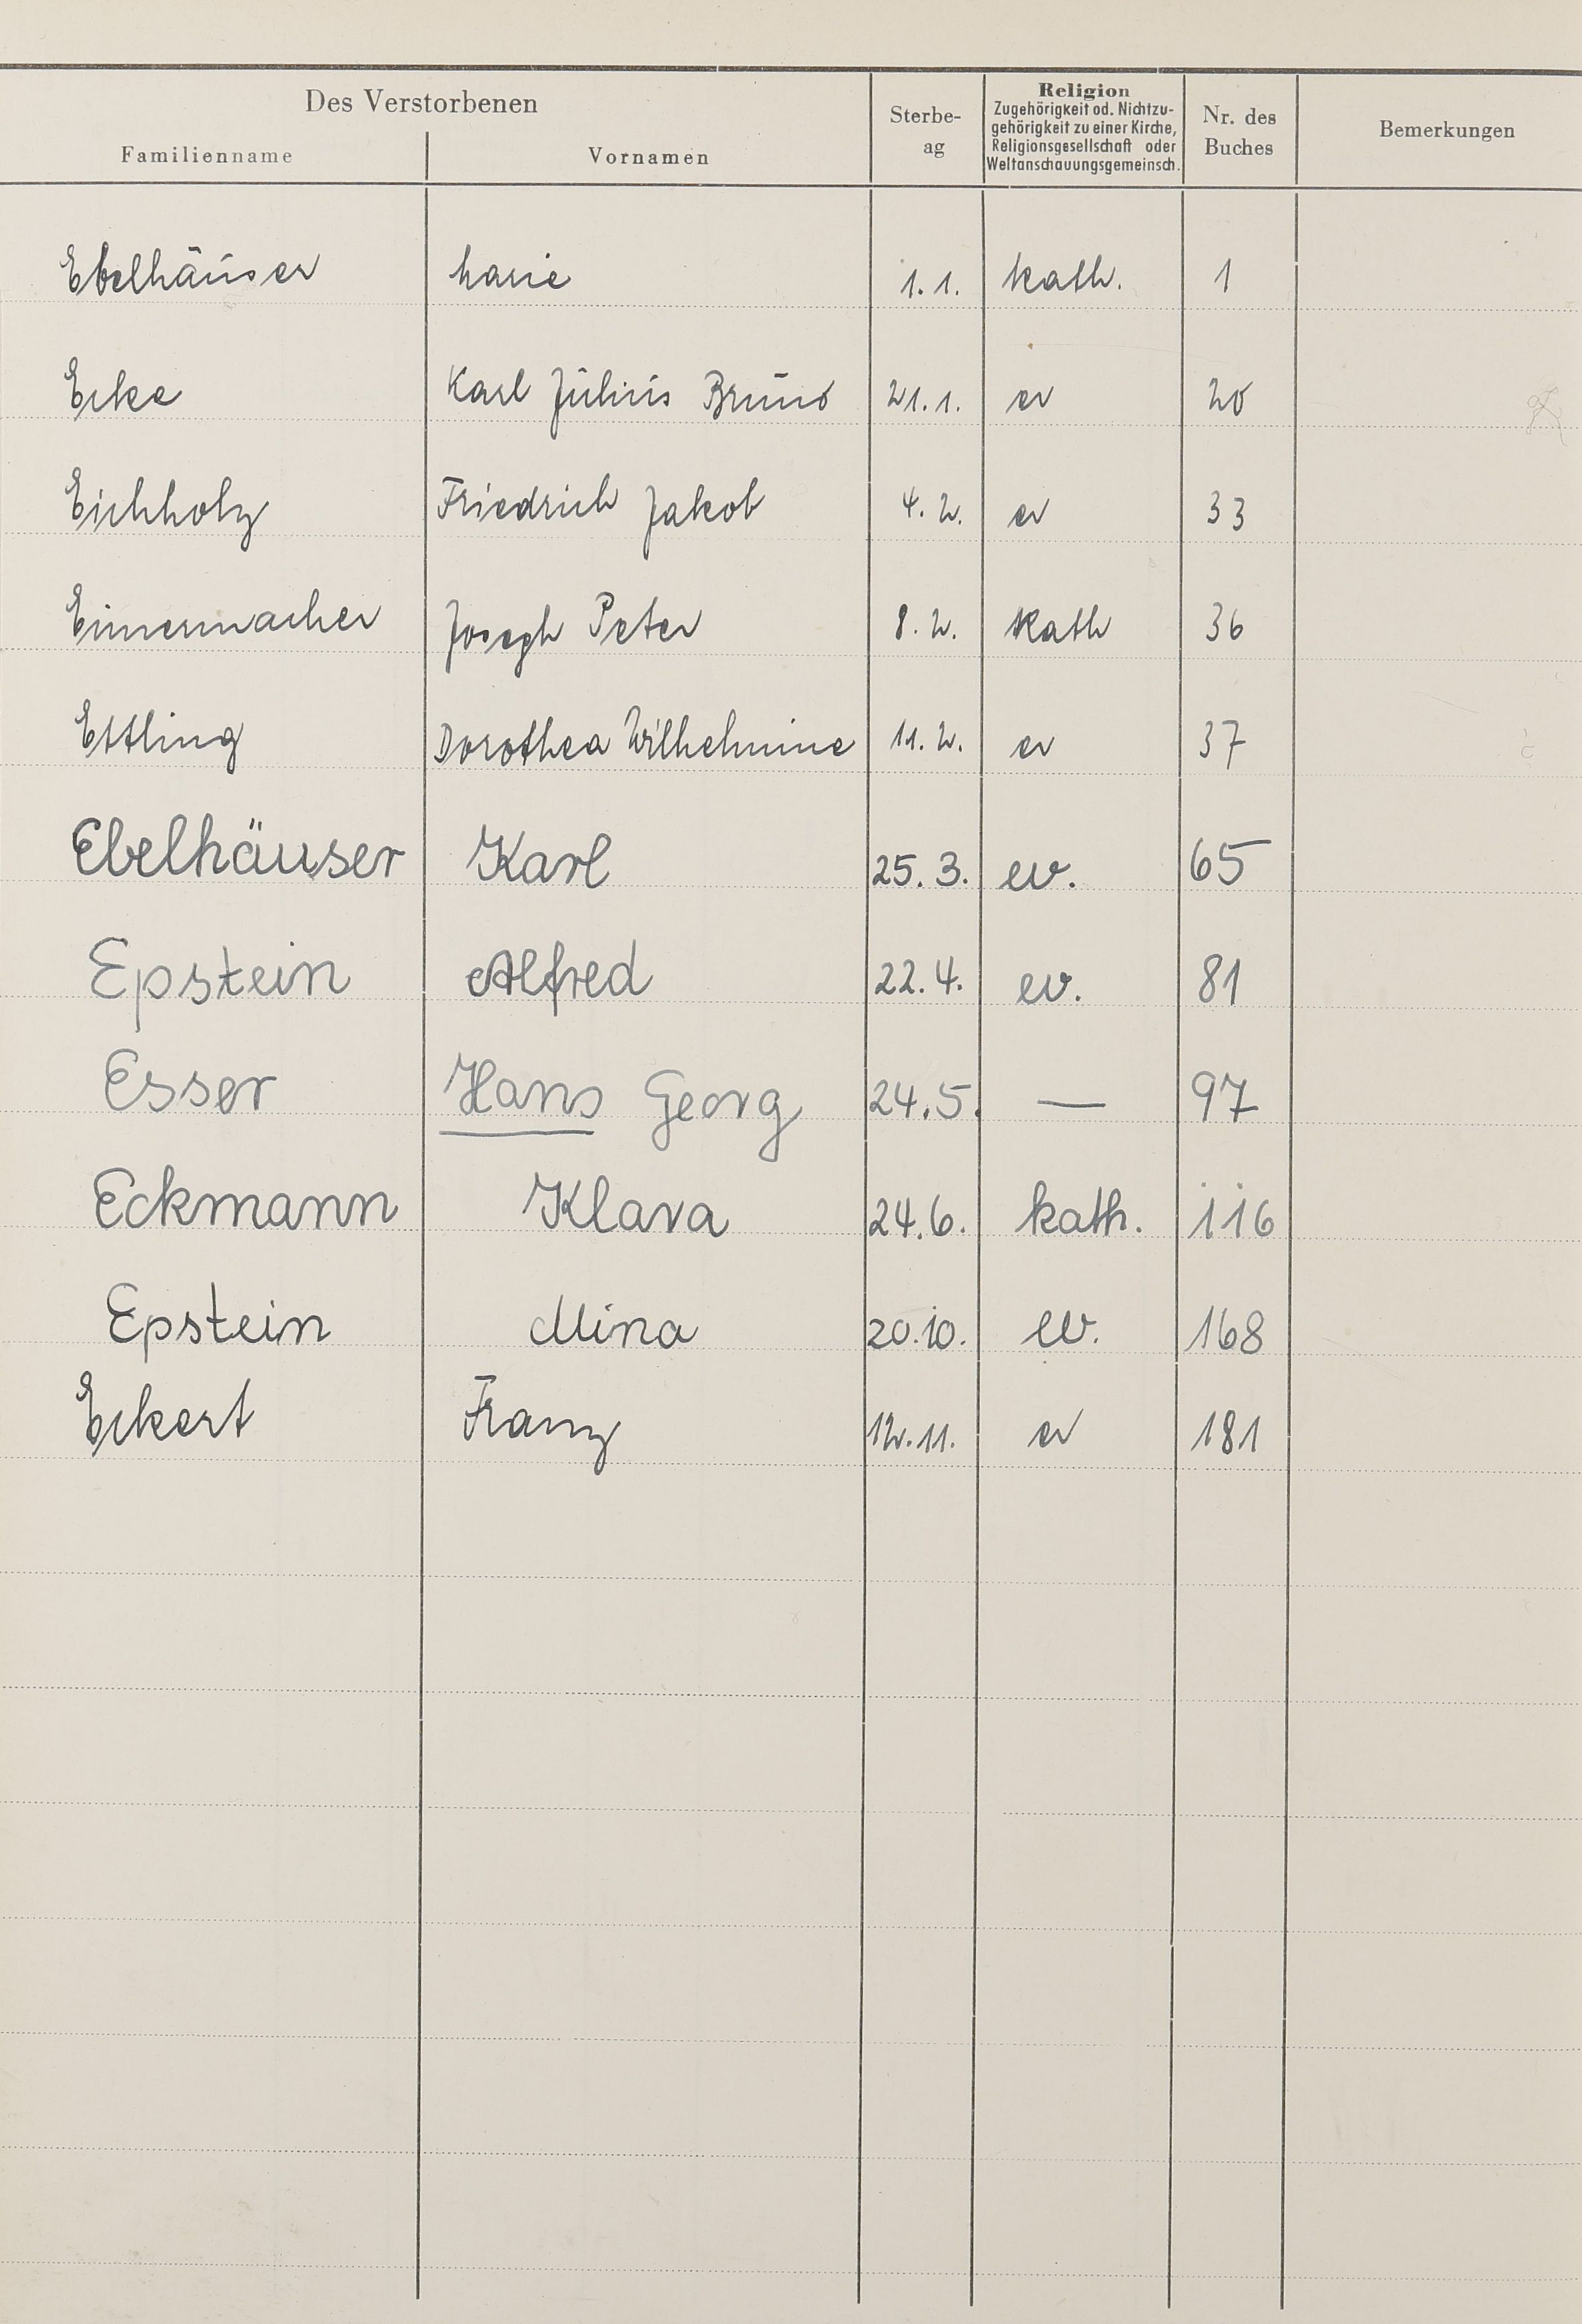 Des Verstorbenen
Familienname Vornamen Sterbe-ag Religion Zugehörigkeit od. Nichtzu-gehörigkeit zu einer Kirche, Religionsgesellschaft oder Weltanschauungsgemeinsch. Nr. des Buches Bemerkungen
Ebelhäuser Marie 1.1. kath. 1
Ecke Karl Julius Bruno 21.1. ev 20
Eichholz Friedrich Jakob 4.2. ev 33
Eimermacher Joseph Peter 8.2. kath 36
Ettling Dorothea Wilhelmine 11.2. ev 37
Ebelhäuser Karl 25.3. ev. 65
Epstein Alfred 22.4. ev. 81
Esser Hans Georg 24.5. — 97
Eckmann Klara 24.6. kath. 116
Epstein Mina 20.10. ev. 168
Eckert Franz 12.11. ev 181